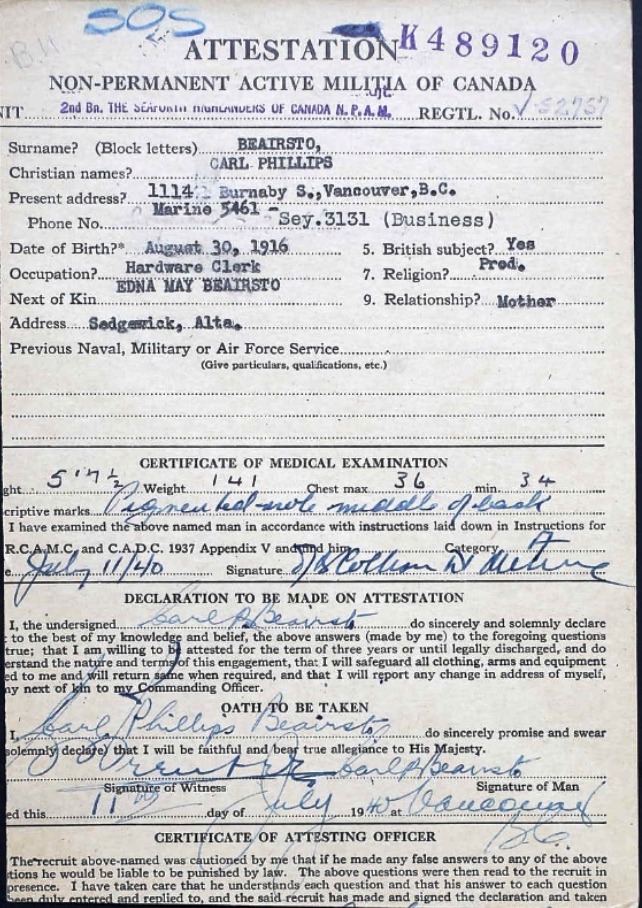 B.H
SOS
ATTESTATION K489120
NON-PERMANENT ACTIVE MILITIA OF CANADA
NIT 2nd Bn. THE SEAFORTH HIGHLANDERS OF CANADA N.P.A.M. REGTL. No. 52757
Surname? (Block letters) BEAIRSTO,
Christian names? CARL PHILLIPS
Present address? 1114 Burnaby S., Vancouver, B.C.
Phone No. Marine 5461 - Sey.3131 (Business)
Date of Birth?* August 30, 1916 5. British subject? Yes
Occupation? Hardware Clerk 7. Religion? Pred.
Next of Kin EDNA MAY BEAIRSTO 9. Relationship? Mother
Address Sedgewick, Alta.
Previous Naval, Military or Air Force Service
(Give particulars, qualifications, etc.)
CERTIFICATE OF MEDICAL EXAMINATION
ght 5'7½ Weight 141 Chest max 36 min. 34
criptive marks Pigmented mole middle of back
I have examined the above named man in accordance with instructions laid down in Instructions for
R.C.A.M.C. and C.A.D.C. 1937 Appendix V and find him Category A
e July 11/40 Signature
DECLARATION TO BE MADE ON ATTESTATION
I, the undersigned Carl P. Beairsto do sincerely and solemnly declare
to the best of my knowledge and belief, the above answers (made by me) to the foregoing questions
true; that I am willing to be attested for the term of three years or until legally discharged, and do
erstand the nature and terms of this engagement, that I will safeguard all clothing, arms and equipment
ed to me and will return same when required, and that I will report any change in address of myself,
ny next of kin to my Commanding Officer.
OATH TO BE TAKEN
I, Carl Phillips Beairsto do sincerely promise and swear
solemnly declare) that I will be faithful and bear true allegiance to His Majesty.
Carl P Beairsto
Signature of Witness Signature of Man
ed this 11th day of July 1940 at Vancouver
B.C.
CERTIFICATE OF ATTESTING OFFICER
The recruit above-named was cautioned by me that if he made any false answers to any of the above
tions he would be liable to be punished by law. The above questions were then read to the recruit in
presence. I have taken care that he understands each question and that his answer to each question
been duly entered and replied to, and the said recruit has made and signed the declaration and taken